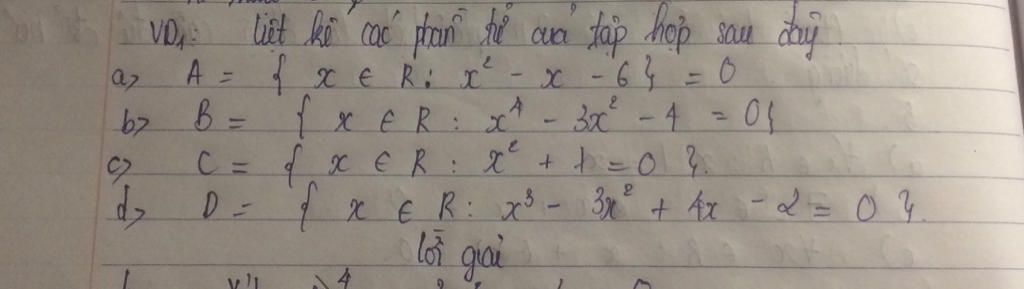 VD1: Liệt kê các phần tử của tập hợp sau đây
a> A = { x ∈ R : x² - x - 6 } = 0
b> B = { x ∈ R : x⁴ - 3x² - 4 = 0 {
c> C = { x ∈ R : x² + 1 = 0 }.
d> D = { x ∈ R : x³ - 3x² + 4x - 2 = 0 }.
Lời giải